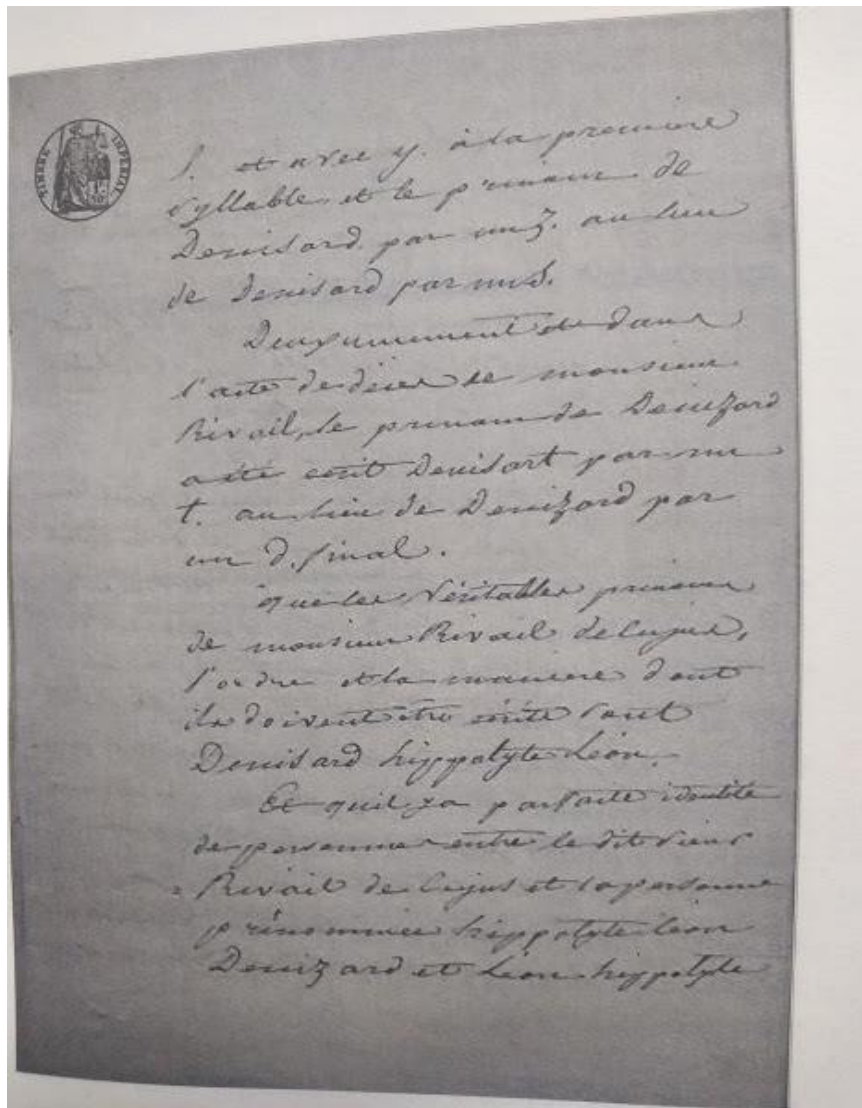 TIMBRE IMPERIAL
l. et avec y. à la première
syllable, et le prénom de
Denisard. par un z. au lieu
de Denisard par un S.
Deuxiemement que dans
l'acte de décès de monsieur
Rivail, le prénom de Denizard
a été écrit Denisart par un
t. au lieu de Denizard par
un d. final.
Que les véritables prénoms
de monsieur Rivail de cujus,
l'ordre et la manière dont
ils doivent être écrits sont
Denisard hippolyte Léon.
Et qu'il y a parfaite identité
de personnes entre le dit sieur
Rivail de Cujus et la personne
prénommée hippolyte Léon
Denizard et Léon hippolyte